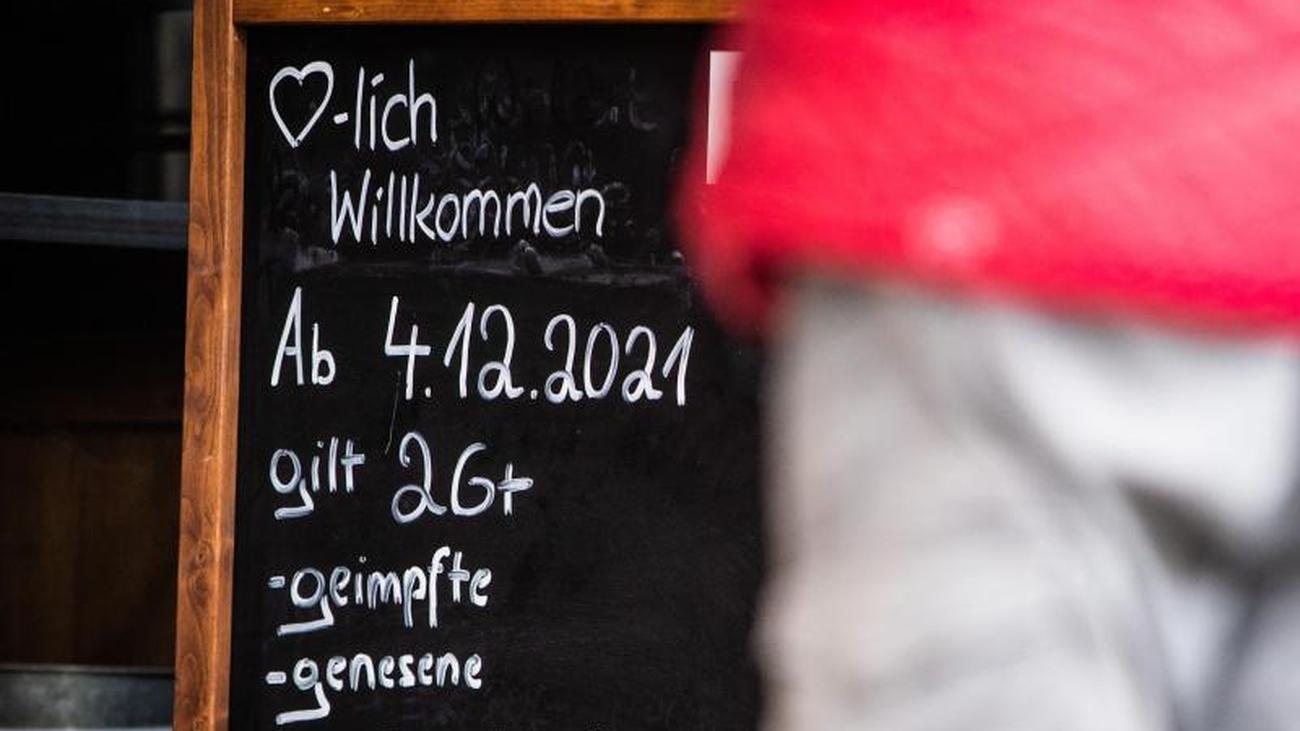 ♡-lich
Willkommen
Ab 4.12.2021
gilt 2G+
-geimpfte
-genesene